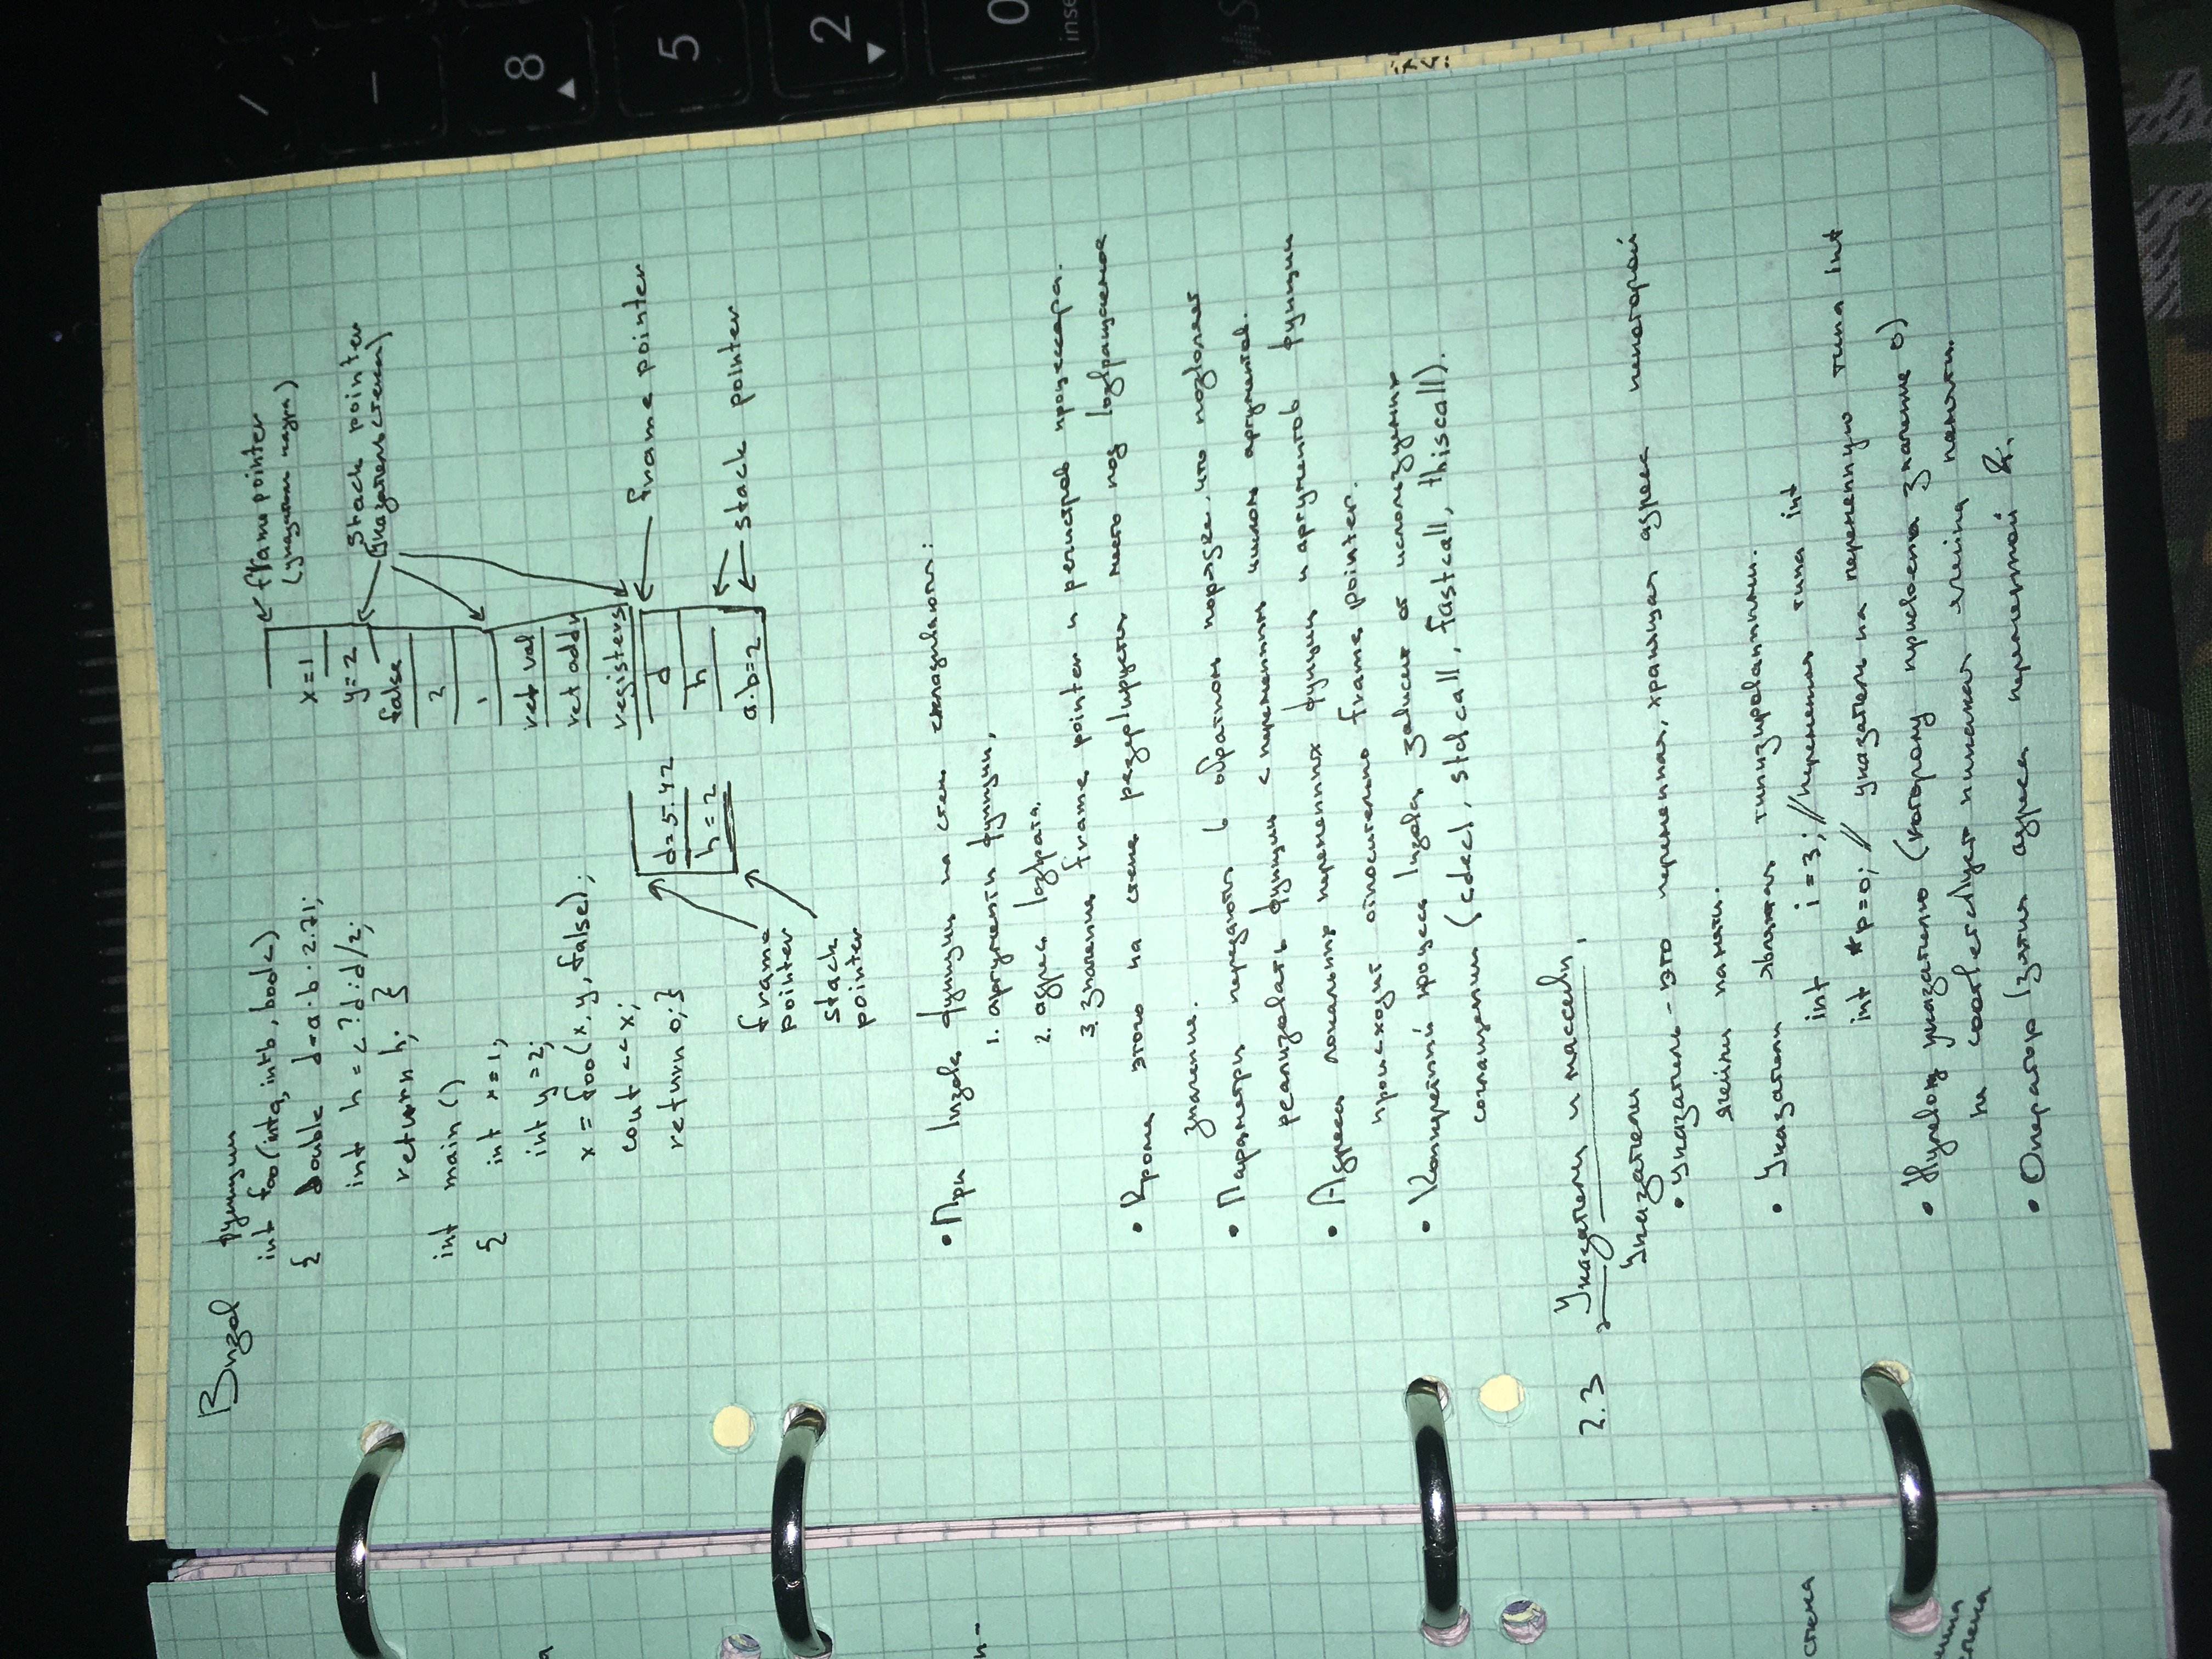 Вызов функции
int foo(int a, int b, bool c)
{ Double d=a·b·2.71;
int h = c ? d : d/2;
return h; }
int main ()
{ int x=1;
int y=2;
x = foo(x, y, false);
cout << x;
return 0; }
frame pointer
(указатель кадра)
x=1
y=2
stack pointer
(указатель стека)
false
2
1
ret val
ret addr
registers
frame pointer
d
h
a·b=2
stack pointer
d=5.42
h=2
frame
pointer
stack
pointer
• При вызове функции на стек складываются:
1. аргументы функции,
2. адрес возврата.
3. значение frame pointer и регистров процессора.
• Кроме этого на стеке резервируется место под возвращаемое
значение.
• Параметры передаются в обратном порядке, что позволяет
реализовать функции с переменным числом аргументов.
• Адреса локальных переменных функции и аргументов функции
происходит относительно frame pointer.
• Конкретный процесс вызова зависит от используемых
соглашений (cdecl, stdcall, fastcall, thiscall).
2.3 Указатели и массивы
Указатели
• Указатель - это переменная, хранящая адрес некоторой
ячейки памяти.
• Указатели являются типизированными.
int i = 3; // переменная типа int
int *p=0; // указатель на переменную типа int
• Нулевому указателю (которому присвоено значение 0)
не соответствует никакая ячейка памяти.
• Оператор взятия адреса переменной &.
стека
8
5
2
0
inse
/